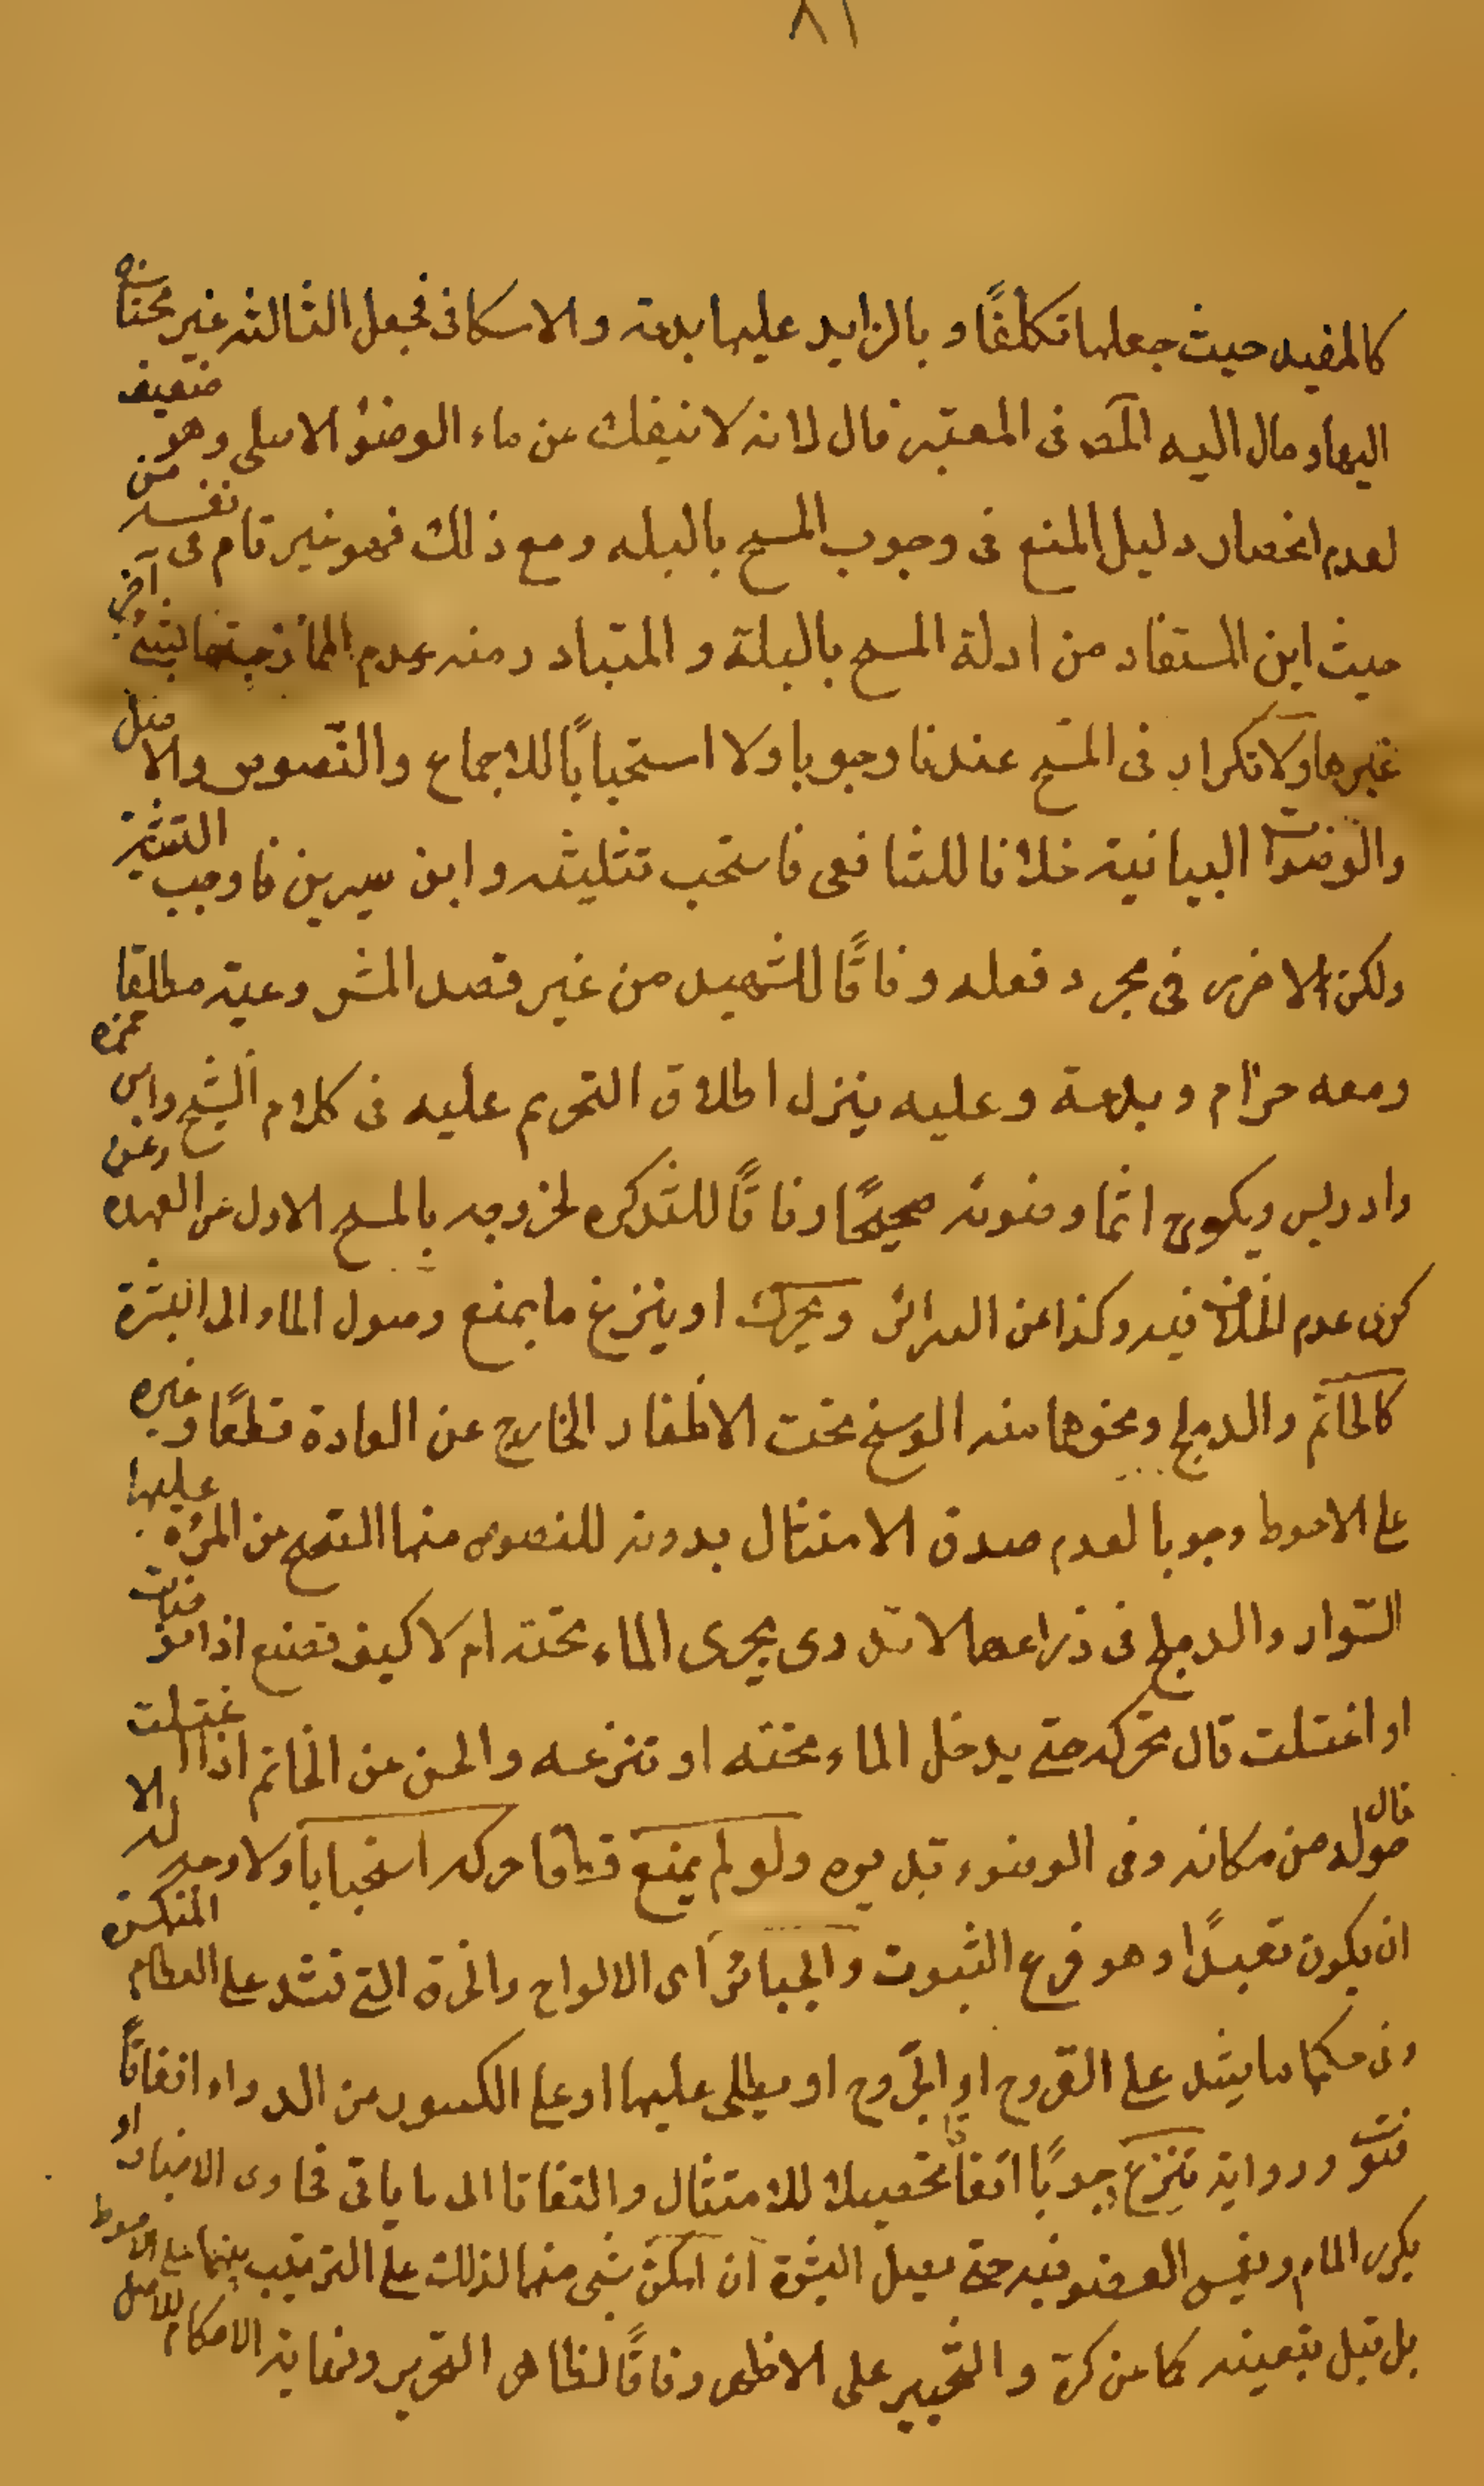 ٨١
كالمفيد حيث جعلها تكلفًا و بالزايد عليها بدعة و الاسكافى فجعل الثالثه غير محتاج
اليها و مال اليه المصـ فى المعتبر قال لانه لا ينفك عن ماء الوضوُ الاصلى و هو ضعيف
لعدم انحصار دليل المنع فى وجوب المسح بالبله و مع ذلك فهو غير تام فى نفسه من
حيث ان المستفاد من ادلة المسح بالبلة و المتبادر منه عدم الممازجتها لشئ آخر
غيرها ولا تكرار فى المسح عندنا وجوبا ولا استحبابًا للاجماع والنّصوص والاصل
والوضوات البيانية خلافا للشافعى فاستحب تثليثه و ابن سيرين فاوجب التثنية
ولكن لاضرر فى مجرد فعله وفاقًا للشهيد من غير قصد المشروعية مطلقا
ومعه حرام و بدعة و عليه ينزل اطلاق التحريم عليه فى كلام الشيخ وابن حمزه
وادريس ويكون اثما وضوئه صحيحًا وفاقًا للتذكره لخروجه بالمسح الاول عن العهده وعن
كرى عدم الخلاف فيه و كذا عن السرائر ويحرك او ينزع ما يمنع وصول الماء الى البشرة
كالخاتم والدملج ونحوهما منه الوسخ تحت الاظفار الخارج عن العادة قطعًا و غيره
على الاحوط وجوبا لعدم صدق الامتثال بدونه للنصوص منها الصحيح عن المرئة عليها
السّوار والدملج فى ذراعها لا تدرى يجرى الماء تحته ام لا كيف تصنع اذا توضات
او اغتسلت قال تحركه حتى يدخل الماء تحته او تنزعه والحسن عن الخاتم اذا اغتسلت
قال حوله من مكانه و فى الوضوء تديره ولو لم يمنع قطعا حركه استحبابا ولا وجه له الا
ان يكون تعبدًا و هو فرع الثبوت والجبائر اى الالواح والخرقة التى تشد على العظام المنكسرة
وفى حكمها ما يشد على القروح او الجروح او يطلى عليها او على الكسور من الدواء اتفاقًا
فتوى و رواية تنزع وجوبًا اتفاقًا تحصيلا للامتثال و التفاتا الى ما ياتى فحاوى الاخبار او
يكرر الماء و يغمس العضو فيه حتى يصل البشرة ان امكن شئ منها لذلك على الترتيب بينهما على الاحوط
بل قيل بتعينه كما عن كرة و التخيير على الاظهر وفاقًا لظاهر التحرير و نهاية الاحكام للاصل